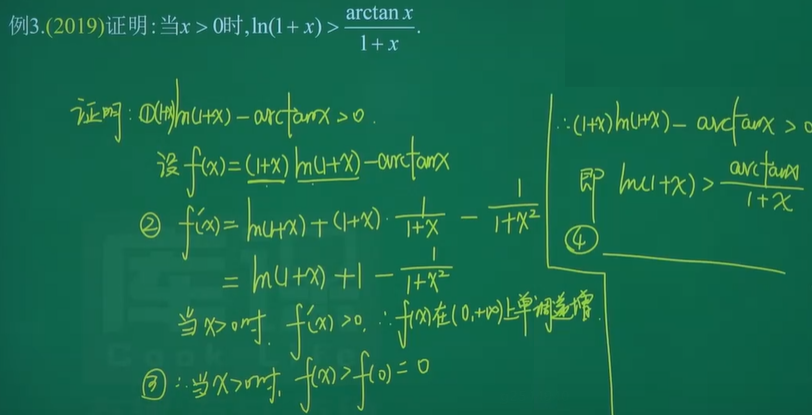 例3.(2019)证明:当x > 0时,ln(1 + x) > arctan x / (1 + x).
证明: ①(1+x)ln(1+x) - arctanx > 0.
设 f(x) = (1+x) ln(1+x) - arctanx
② f'(x) = ln(1+x) + (1+x) · 1/(1+x) - 1/(1+x²)
= ln(1+x) + 1 - 1/(1+x²)
当x>0时, f'(x) >0, ∴f(x)在(0,+∞)上单调递增.
③ ∴当x>0时, f(x) > f(0) = 0
∴(1+x)ln(1+x) - arctanx > 0
即 ln(1+x) > arctanx / (1+x)
④